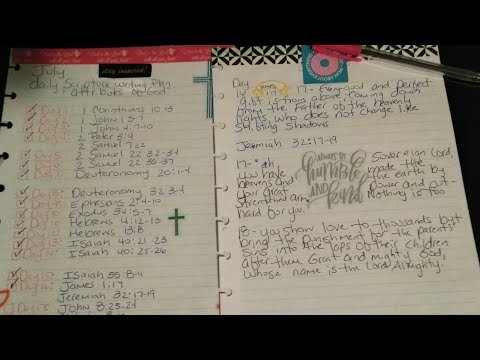 July
stay inspired!
daily Scripture writing Plan
attributes of God
Day 1: 1 Corinthians 10:13
1 John 1:5-7
1 John 4:7-10
2 Peter 3:9
2 Samuel 7:22
2 Samuel 22:32-34
2 Samuel 22:35-37
Deuteronomy 20:1-4
Deuteronomy 32:3-4
Ephesians 2:4-10
Exodus 34:5-7
Hebrews 4:12-13
Hebrews 13:8
Isaiah 40:21-23
Isaiah 40:25-26
Day 15: Isaiah 55:8-11
Day 16: James 1:17
Jeremiah 32:17-19
John 8:23-24
Day
James
17- Every good and Perfect
gift is from above, coming down
from the Father of the heavenly
lights, who does not change like
shifting Shadows
Jeremiah 32:17-19
17- "ah, Sovereign Lord,
you have made the
heavens and the earth by
your great Power and out-
stretched arm Nothing is too
hard for you.
always be
humble
AND
kind
18- you show love to thousands but
bring the Punishment for the parents'
Sins into the laps of their children
after them Great and mighty God,
whose name is the Lord Almighty.